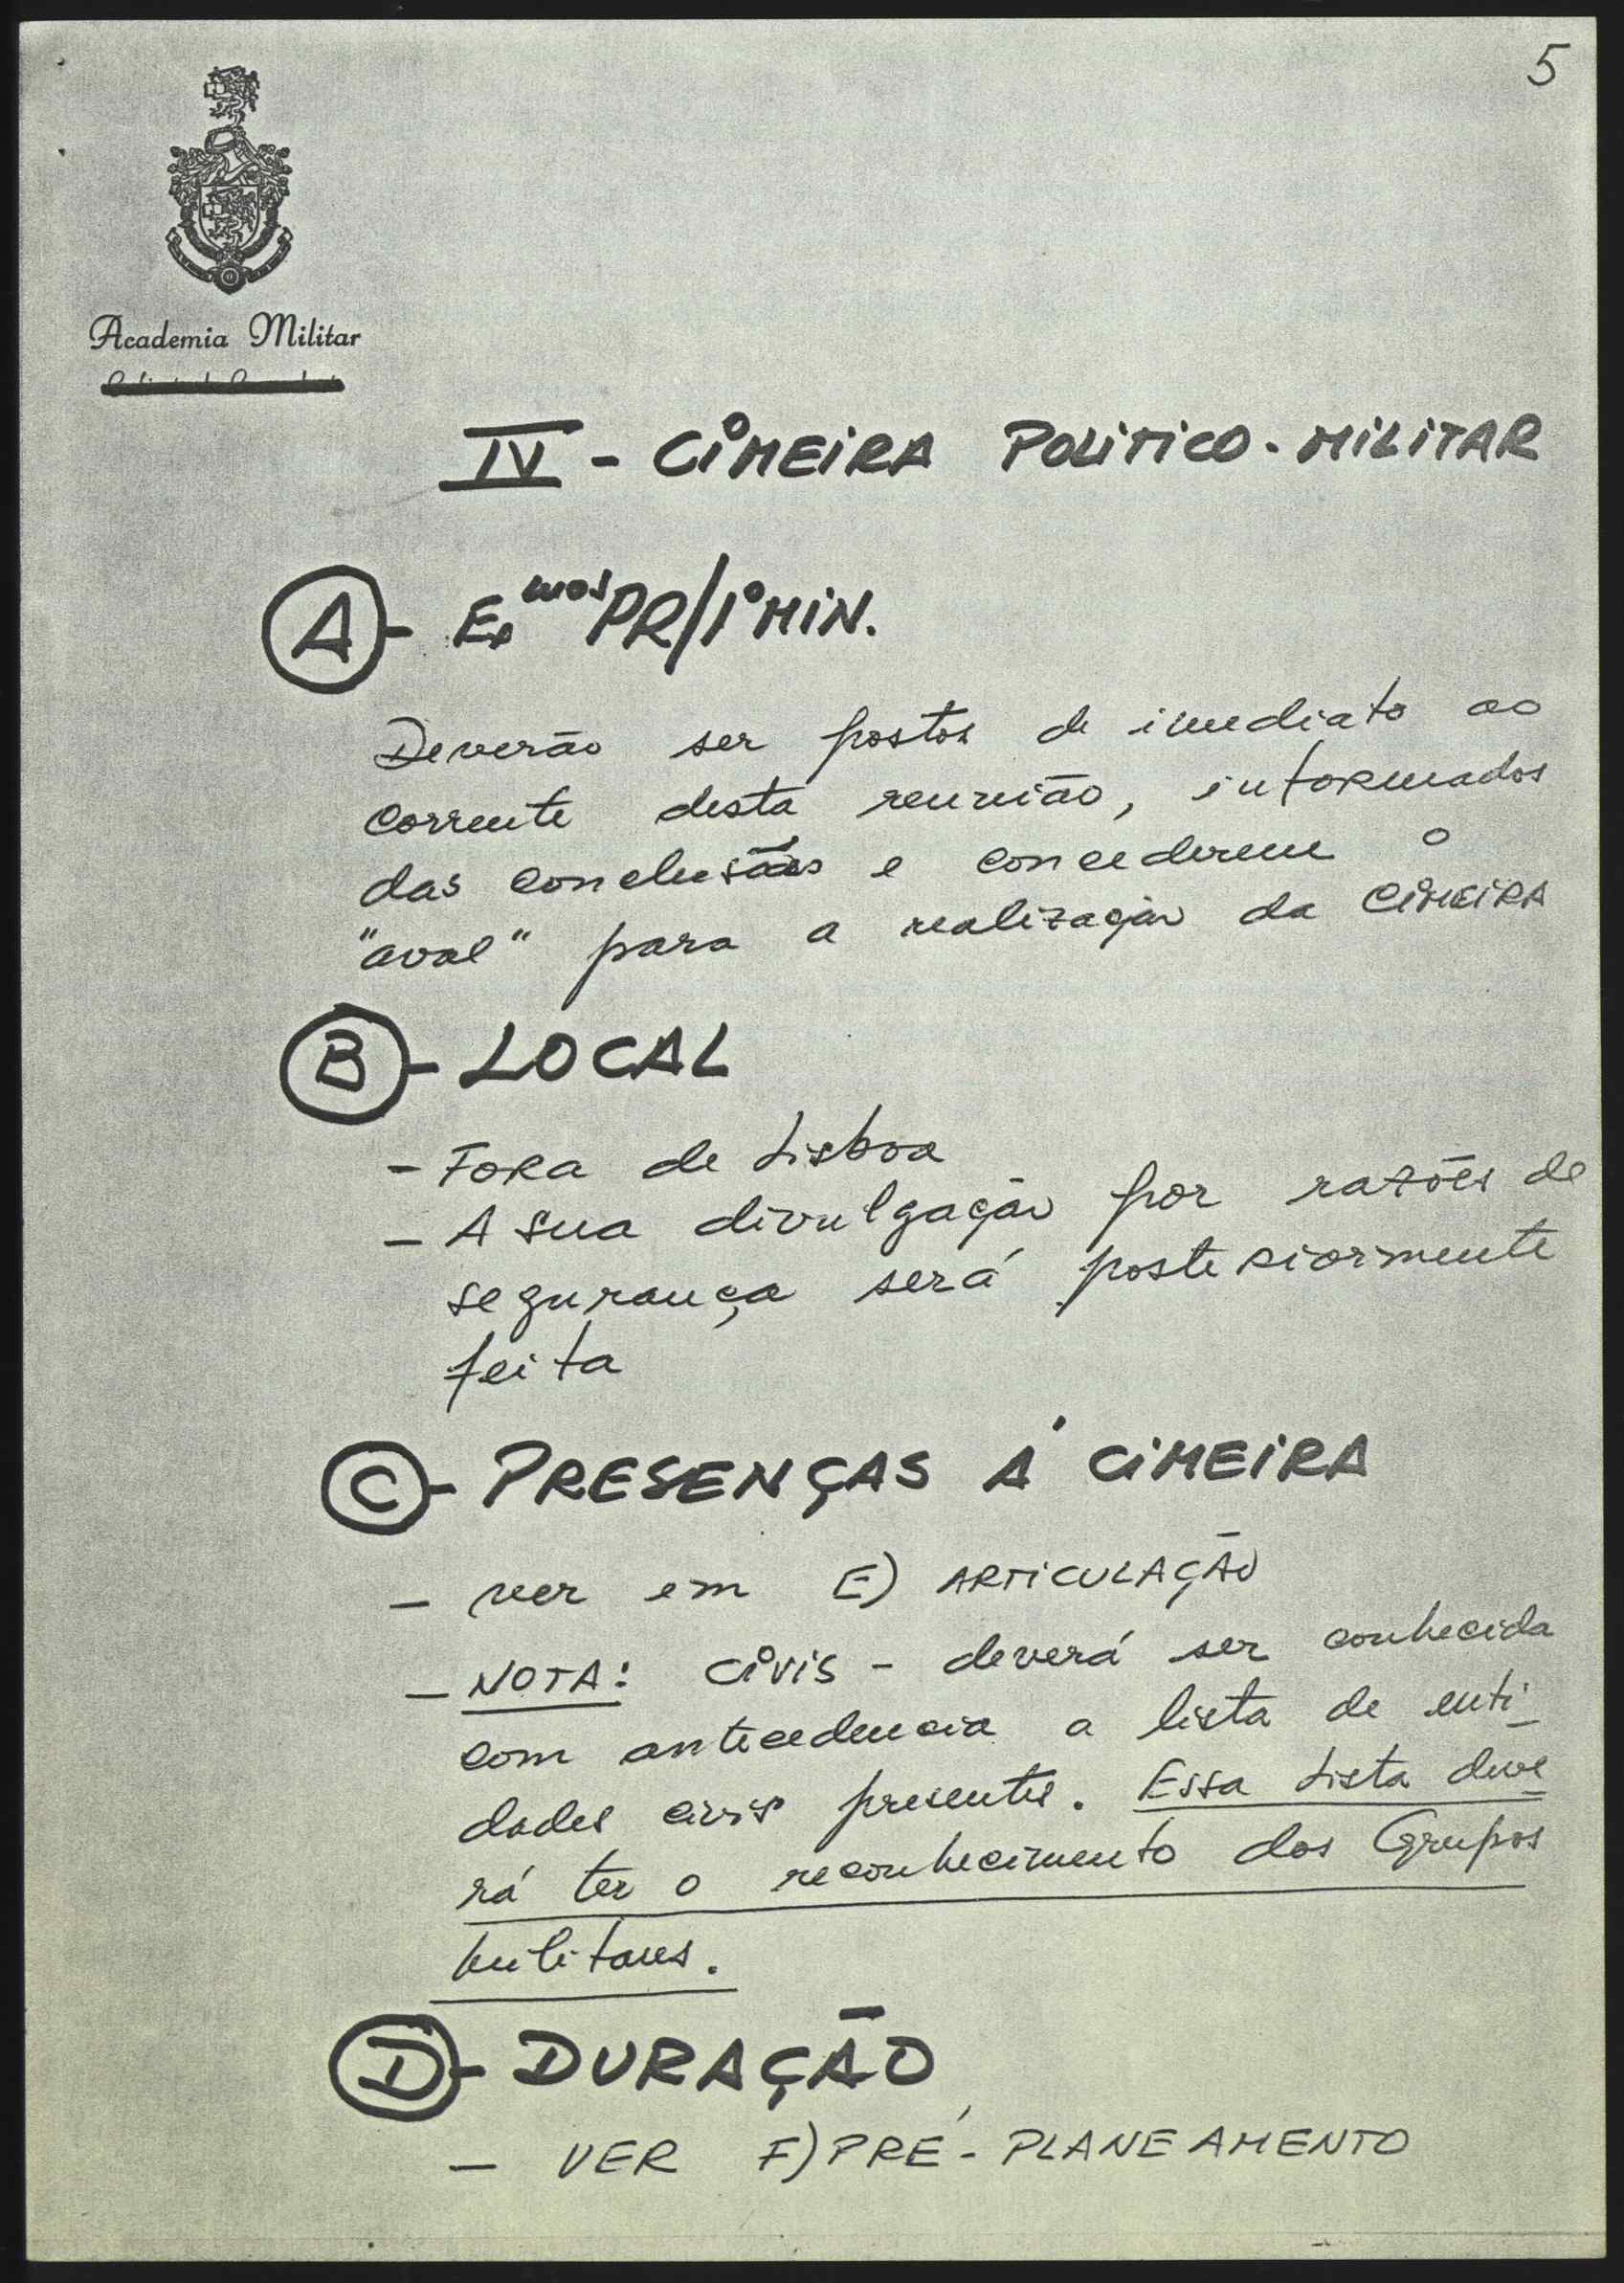 5
Academia Militar
IV - CIMEIRA POLITICO-MILITAR
A - Exmos PR/1º MIN.
Deverão ser postos de imediato ao
corrente desta reunião, informados
das conclusões e concederem o
"aval" para a realização da CIMEIRA
B - LOCAL
- Fora de Lisboa
- A sua divulgação por razões de
segurança será posteriormente
feita
C - PRESENÇAS Á CIMEIRA
- ver em E) ARTICULAÇÃO
- NOTA: CIVIS - deverá ser conhecida
com antecedencia a lista de enti-
dades civis presentes. Essa Lista deve-
rá ter o reconhecimento dos Grupos
militares.
D - DURAÇÃO
- VER F) PRÉ-PLANEAMENTO